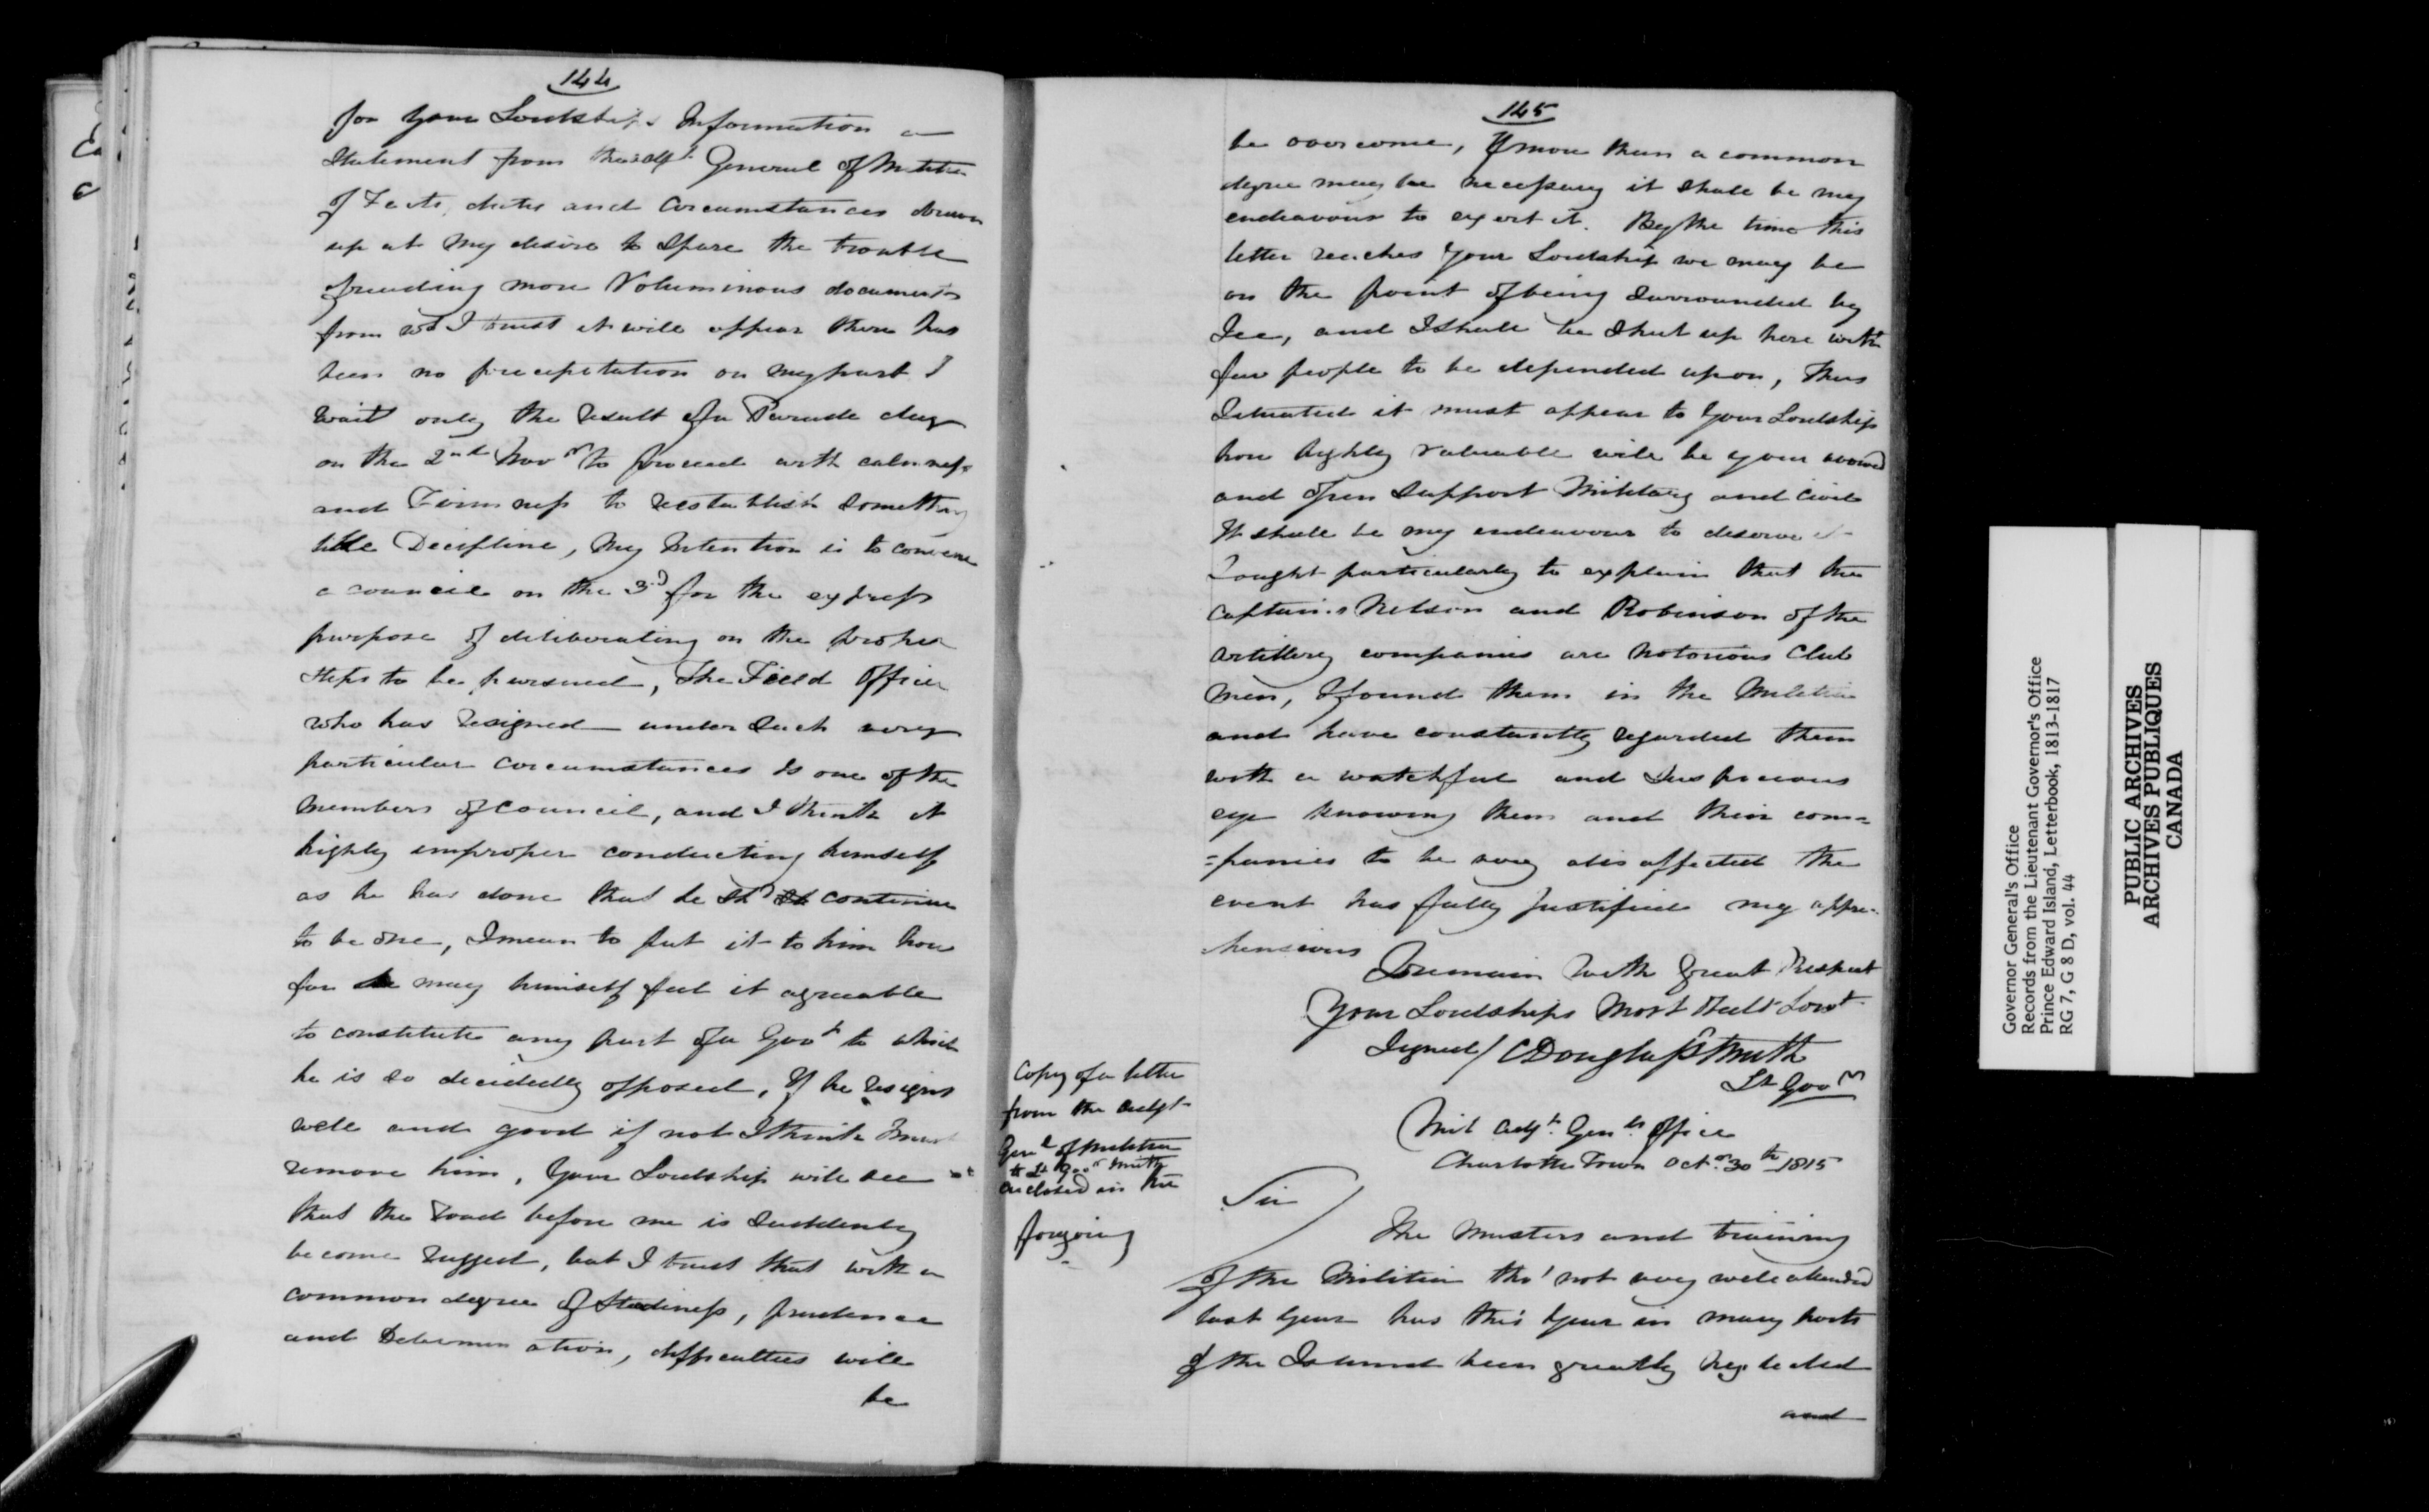 144
for your Lordships Information a
Statement from the adjt General of Militia
of Facts, dates and Circumstances drawn
up at my desire to Spare the trouble
of reading more Voluminous documents
from wh I trust it will appear there has
been no precepitation on my part I
wait only the result of a Parade day
on the 2nd Novr to proceed with calmness
and Firmness to reestablish Something
like Decipline, My Intention is to convene
a council on the 3d for the express
purpose of deliberating on the proper
Steps to be pursued, The Field Officer
who has resigned under Such very
particular Circumstances Is one of the
Members of Council, and I think it
highly improper conducting himself
as he has done that he shd continue
to be one, I mean to put it to him how
far he may himself feel it agreeable
to constitute any part of a Govt to which
he is so decidedly opposed, If he resigns
well and good if not I think I must
remove him, Your Lordship will see
that the road before me is Suddenly
become rugged, but I trust that with a
common degree of Steadiness, prudence
and Determination, difficulties will
be
145
be overcome, If more than a common
degree may be necessary it shall be my
endeavour to exert it. By the time this
letter reaches Your Lordship we may be
on the point of being Surrounded by
Ice, and I shall be Shut up here with
few people to be depended upon, Thus
Situated it must appear to Your Lordship
how highly valuable will be your avowed
and open Support Military and Civil
It shall be my endeavour to deserve it
I ought particularly to explain that the
Captains Nelson and Robinson of the
Artillery companies are Notorious Club
Men, I found them in the Militia
and have constantly regarded them
with a watchful and Suspicious
eye knowing them and their com=
=panies to be very disaffected the
event has fully Justified my appre-
hensions
I remain With Great Respect
Your Lordships Most Obedt Servt
Signed/ C Douglass Smith
Lt Govr
Mil Adjt Genls Office
Charlotte Town Octr 30th 1815
Copy of a letter
from the Adjt
Genl of Militia
to Lt Govr Smith
enclosed in the
forgoing
Sir/
The Musters and training
of the Militia tho' not very well attended
last Year has this Year in many parts
of the Island been greatly Neglected
and
Governor General's Office
Records from the Lieutenant Governor's Office
Prince Edward Island, Letterbook, 1813-1817
RG 7, G 8 D, vol. 44
PUBLIC ARCHIVES
ARCHIVES PUBLIQUES
CANADA